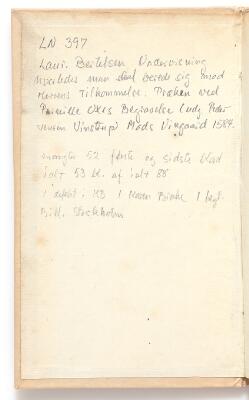 LN 397
Laur. Bertelsen Underviisning
hvorledes man skal berede sig imod
Herrens Tilkommelse. Prædken ved
Pernille Oxes Begravelse Ludg Peder-
Vinstrup Mads Vingaard 1584.
mangler 52 første og sidste blad
ialt 53 bl. af ialt 88
1 defekt i KB 1 Karen Brahe 1 kgl.
Bibl. Stockholm